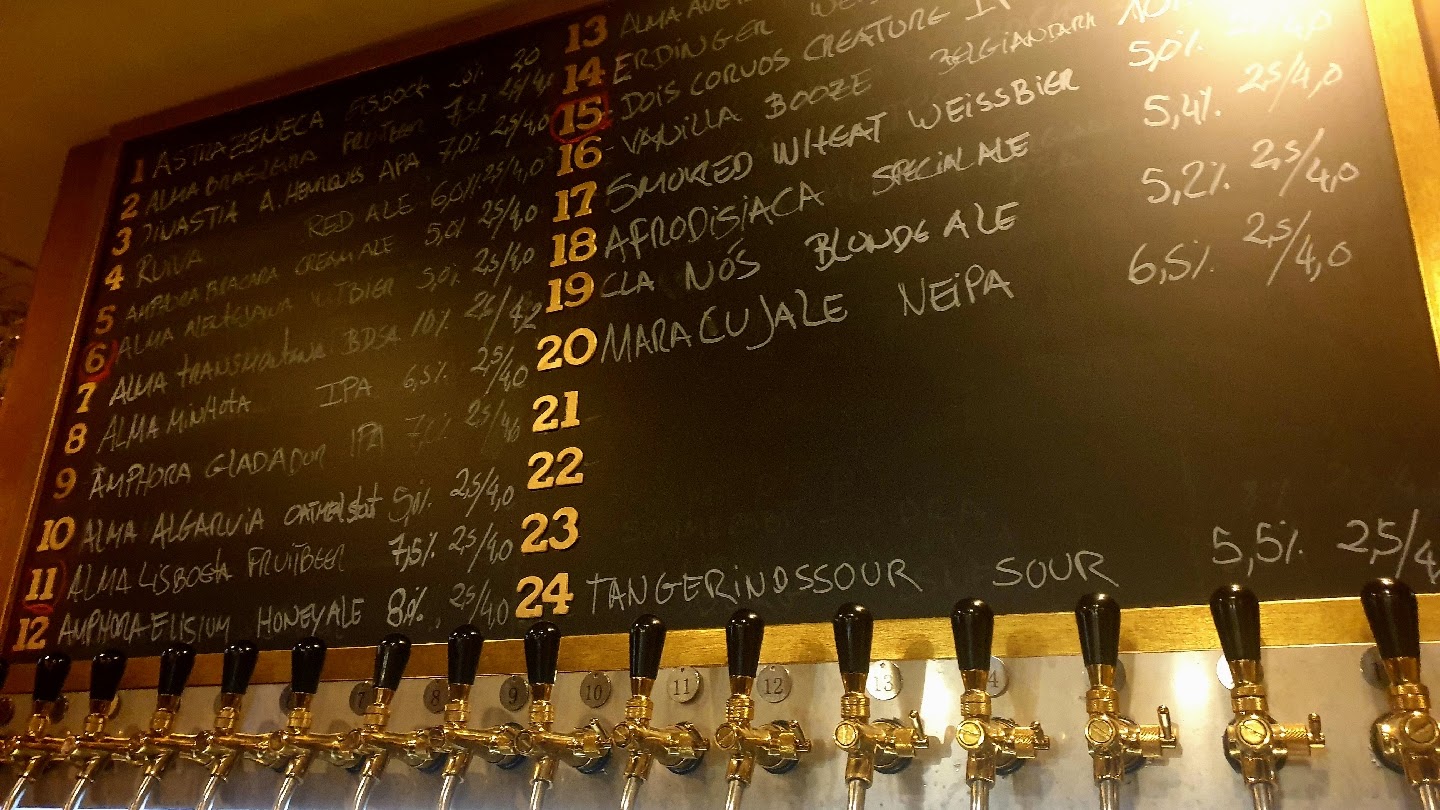 1 ASTRAZENECA EISBOCK 20
2 ALMA BRASILEIRA FRUITBEER 7,5% 2,5/4,0
3 DINASTIA A. HENRIQUES APA 7,0% 2,5/4,0
4 RUIVA RED ALE 6,0% 2,5/4,0
5 AMPHORA BRACARA CREAM ALE 5,0% 2,5/4,0
6 ALMA ALENTEJANA WITBIER 5,0% 2,5/4,0
7 ALMA TRANSMONTANA BDSA 10% 4,2
8 ALMA MINHOTA IPA 6,5% 2,5/4,0
9 AMPHORA GLADADOR IPA 2,5/4,0
10 ALMA ALGARVIA OATMEL STOUT 5,0% 2,5/4,0
11 ALMA LISBOETA FRUITBEER 7,5% 2,5/4,0
12 AMPHORA ELISIUM HONEY ALE 8,0% 2,5/4,0
13 ALMA
14 ERDINGER
15 DOIS CORVOS CREATURE
16 VANILLA BOOZE BELGIAN DARK
17 SMOKED WHEAT WEISSBIER 5,0%
18 AFRODISIACA SPECIAL ALE 5,4% 2,5/4,0
19 CLA NÓS BLONDE ALE 5,2% 2,5/4,0
20 MARACUJALE NEIPA 6,5% 2,5/4,0
21
22
23
24 TANGERINOSSOUR SOUR 5,5% 2,5/4,
7 8 9 10 11 12 13